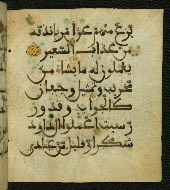 يزغ منهم عن امرنا نذقه
من عذاب السعير
يعملون له ما يشاء من
محريب وتمثيل وجفان
كالجواب وقدور
رسيت اعملوا ءال داود
شكرا وقليل من عبادي